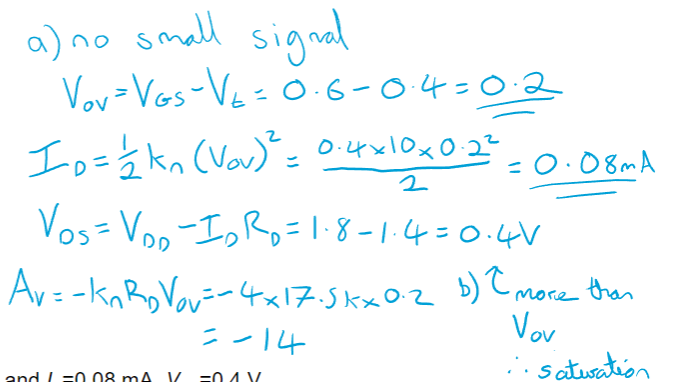 a) no small signal
V_OV = V_GS - V_t = 0.6 - 0.4 = 0.2
I_D = 1/2 k_n (V_OV)^2 = (0.4 x 10 x 0.2^2)/2 = 0.08mA
V_DS = V_DD - I_D R_D = 1.8 - 1.4 = 0.4V
A_V = -k_n R_D V_OV = -4 x 17.5k x 0.2
= -14
b) ↑ more than
V_OV
∴ saturation
and I =0.08 mA V =0.4 V